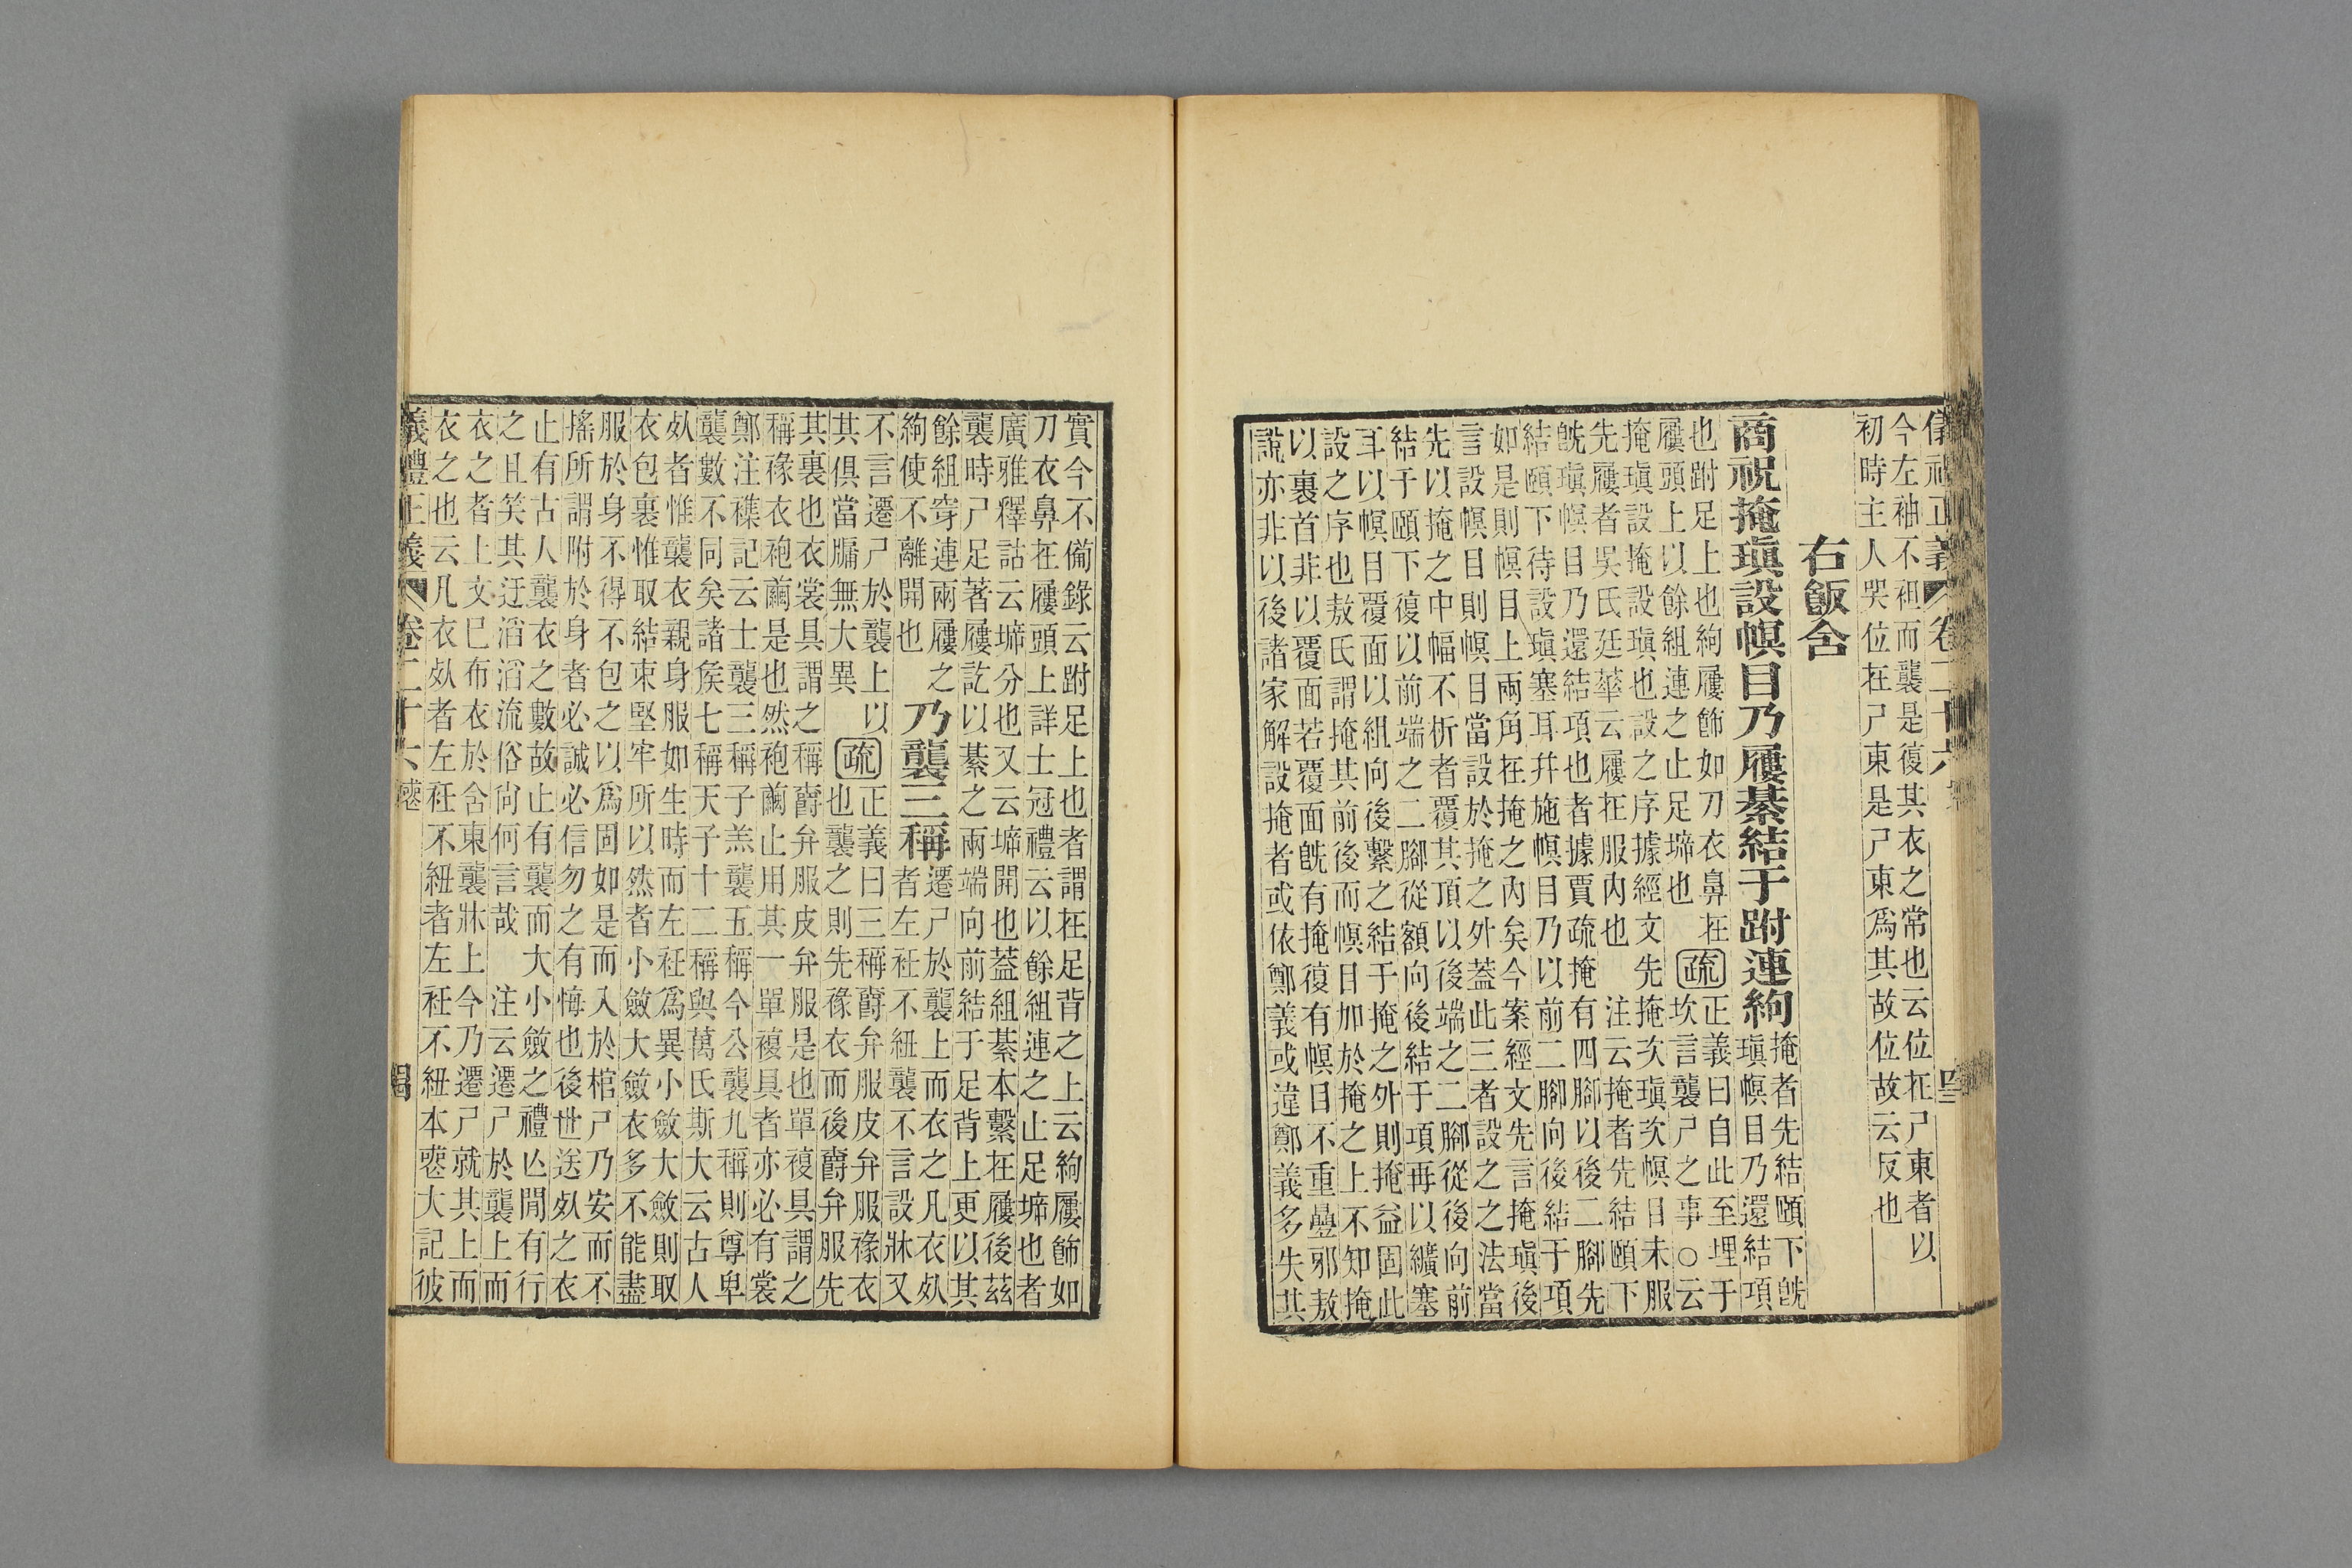 今左袖不袒而襲是復其衣之常也云位在尸東者以
初時主人哭位在尸東是尸東爲其故位故云反也
右飯含
商祝掩瑱設幎目乃屨綦結于跗連絇
掩者先結頤下旣
瑱幎目乃還結項
也跗足上也絇屨飾如刀衣鼻在
屨頭上以餘組連之止足㙛也
疏
正義曰自此至埋于
坎言襲尸之事○云
掩瑱設掩設瑱也設之序據經文先掩次瑱次幎目未服
先屨者吳氏廷華云屨在服内也
注云掩者先結頤下
旣瑱幎目乃還結項也者據賈疏掩有四腳以後二腳先
結頤下待設瑱塞耳幷施幎目乃以前二腳向後結于項
如是則幎目上兩角在掩之内矣今案經文先言掩瑱後
言設幎目則幎目當設於掩之外蓋此三者設之之法當
先以掩之中幅不析者覆其頂以後端之二腳從後向前
結于頤下復以前端之二腳從額向後結于項再以纊塞
耳以幎目覆面以組向後繫之結于掩之外則掩益固此
設之序也敖氏謂掩其前後而幎目加於掩之上不知掩
以裹首非以覆面若覆面旣有掩復有幎目不重疊邪敖
說亦非以後諸家解設掩者或依鄭義或違鄭義多失其
實今不備錄云跗足上也者謂在足背之上云絇屨飾如
刀衣鼻在屨頭上詳士冠禮云以餘組連之止足㙛也者
廣雅釋詁云㙛分也又云㙛開也蓋組綦本繫在屨後茲
襲時尸足著屨訖以綦之兩端向前結于足背上更以其
餘組穿連兩屨之
絇使不離開也
乃襲三稱
遷尸於襲上而衣之凡衣死
者左衽不紐襲不言設牀又
不言遷尸於襲上以
其俱當牖無大異也
疏
正義曰三稱爵弁服皮弁服褖衣
襲之則先褖衣而後爵弁服先
其裏也衣裳具謂之稱爵弁服皮弁服是也單複具謂之
稱褖衣袍繭是也然袍繭止用其一單複具者亦必有裳
鄭注襍記云士襲三稱子羔襲五稱今公襲九稱則尊卑
襲數不同矣諸侯七稱天子十二稱與萬氏斯大云古人
死者惟襲衣親身服如生時而左衽爲異小斂大斂則取
衣包裹惟取結束堅牢所以然者小斂大斂衣多不能盡
服於身不得不包之以爲固如是而入於棺尸乃安而不
搖所謂附於身者必誠必信勿之有悔也後世送死之衣
止有古人襲衣之數故止有襲而大小斂之禮亾閒有行
之且笑其迂滔滔流俗尙何言哉
注云遷尸於襲上而
衣之者上文巳布衣於含東襲牀上今乃遷尸就其上而
衣之也云凡衣死者左衽不紐者左衽不紐本喪大記彼